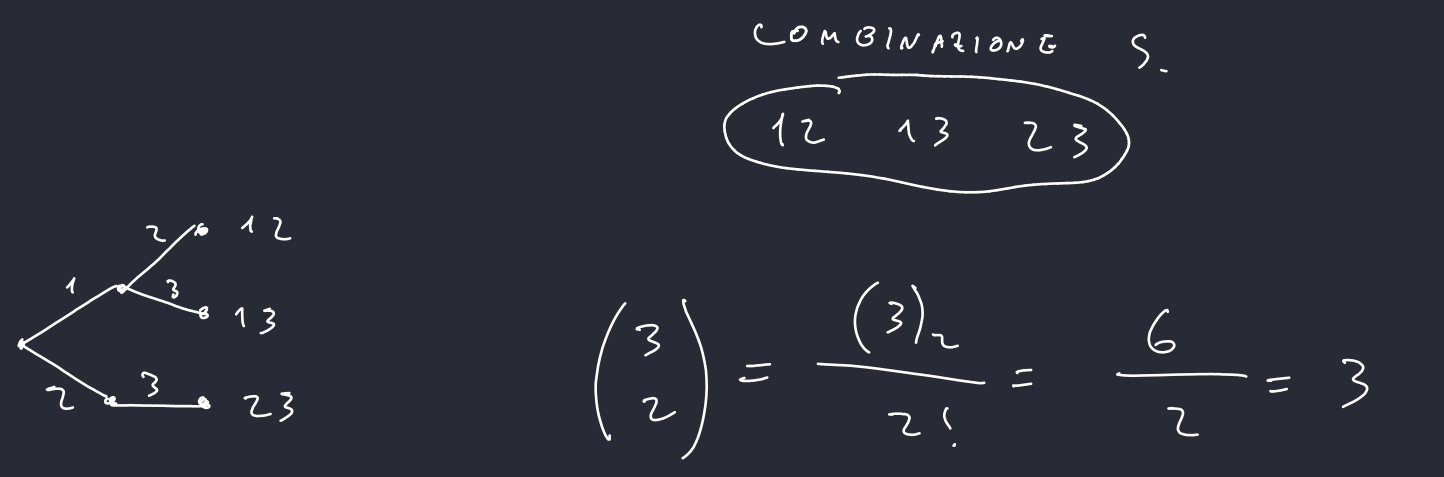 COMBINAZIONE S.
12 13 23
2 12
1 3 13
2 3 23
(3)₂ 6
(3 2) = = = 3
2! 2